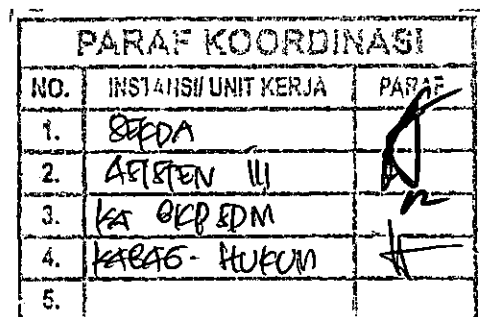 PARAF KOORDINASI
NO. INSTANSI/ UNIT KERJA PARAF
1. SEKDA
2. ASISTEN III
3. KA BKPSDM
4. KABAG - HUKUM
5.